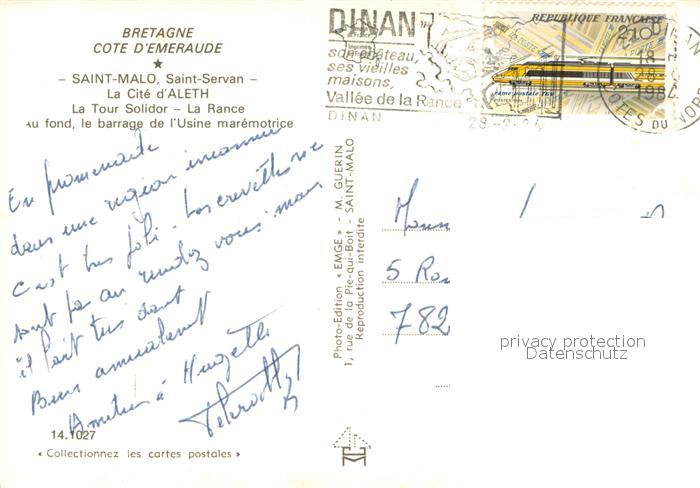 BRETAGNE
COTE D'EMERAUDE
– SAINT-MALO, Saint-Servan –
La Cité d'ALETH
La Tour Solidor – La Rance
Au fond, le barrage de l'Usine marémotrice
En promenade
dans une région inconnue
c'est très joli. Les crevettes ne
sont pas au rendez vous mais
il fait très
Bons
Amitiés à Huguette
14.1027
« Collectionnez les cartes postales »
Photo-Édition « EMGE » - M. GUERIN
1, rue de la Pie-qui-Boit - SAINT-MALO
Reproduction interdite
DINAN
son château,
ses vieilles
maisons,
Vallée de la Rance
DINAN
REPUBLIQUE FRANÇAISE
2,00
rame postale TGV
18
28
1984
COTES DU NORD
5
782
privacy protection
Datenschutz